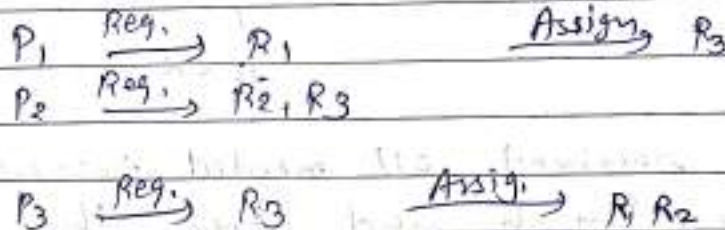 P1 Req. → R1 Assign → R3
P2 Req. → R2, R3
P3 Req. → R3 Assig. → R, R2